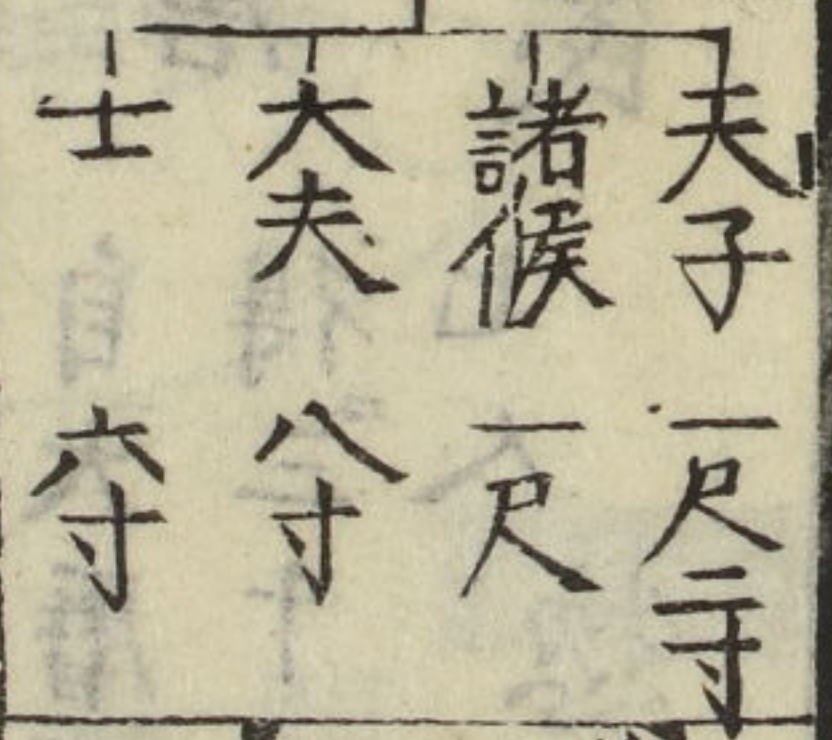 天子 一尺二寸
諸候 一尺
大夫 八寸
士 六寸